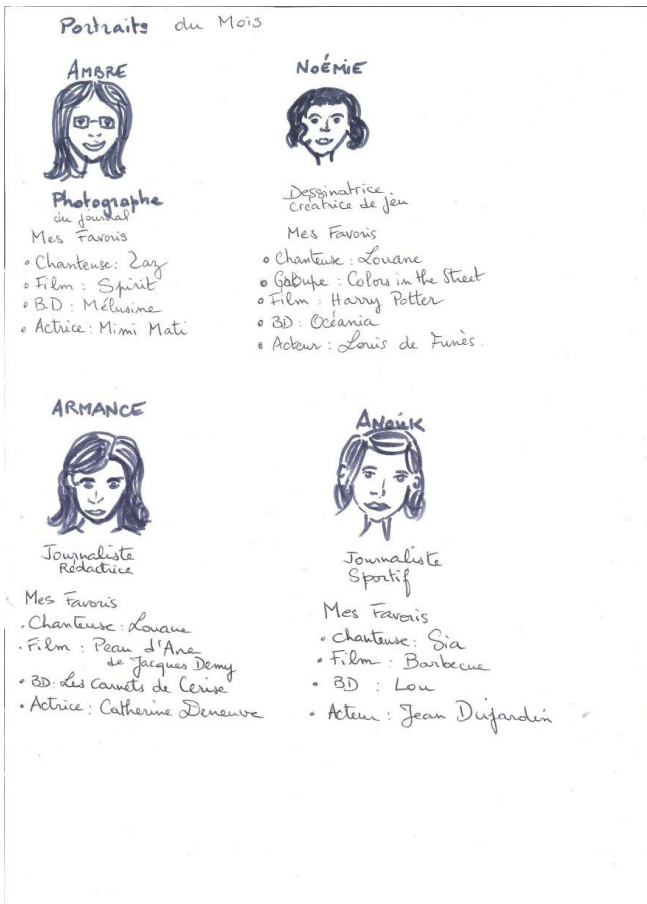 Portraits du Mois
AMBRE
Photographe
du journal
Mes Favoris
• Chanteuse: Zaz
• Film : Spirit
• B.D : Mélusine
• Actrice : Mimi Mati
NOÉMIE
Dessinatrice
Créatrice de jeu
Mes Favoris
• Chanteuse : Louane
• : Colors in the Street
• Film : Harry Potter
• BD : Océania
• Acteur : Louis de Funès.
ARMANCE
Journaliste
Rédactrice
Mes Favoris
• Chanteuse : Louane
• Film : Peau d'Ane
de Jacques Demy
• BD : Les Carnets de Cerise
• Actrice : Catherine Deneuve
ANOÚK
Journaliste
Sportif
Mes Favoris
• Chanteuse : Sia
• Film : Barbecue
• BD : Lou
• Acteur : Jean Dujardin